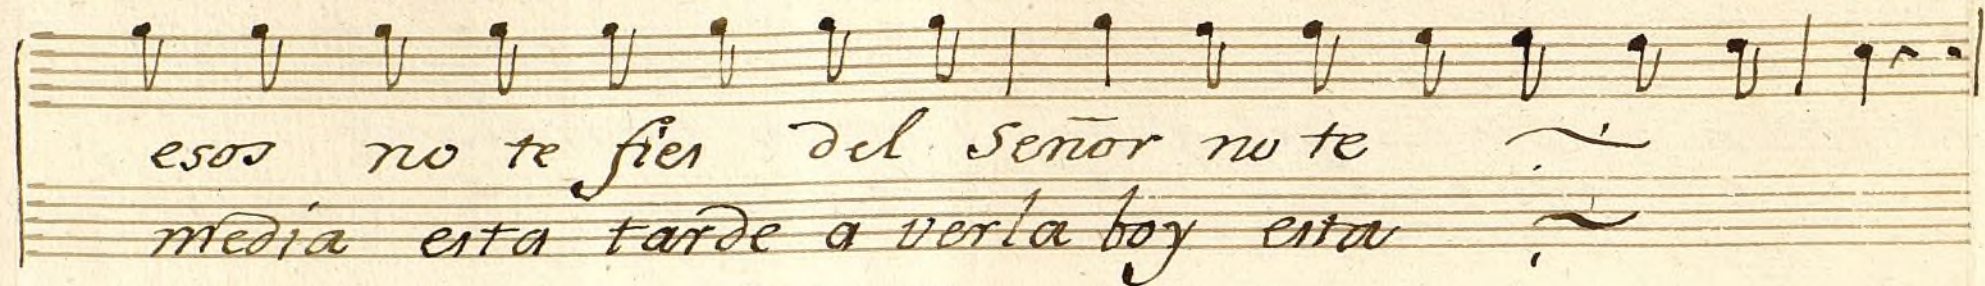 esos no te fies del Señor no te
media esta tarde a verla boy esta